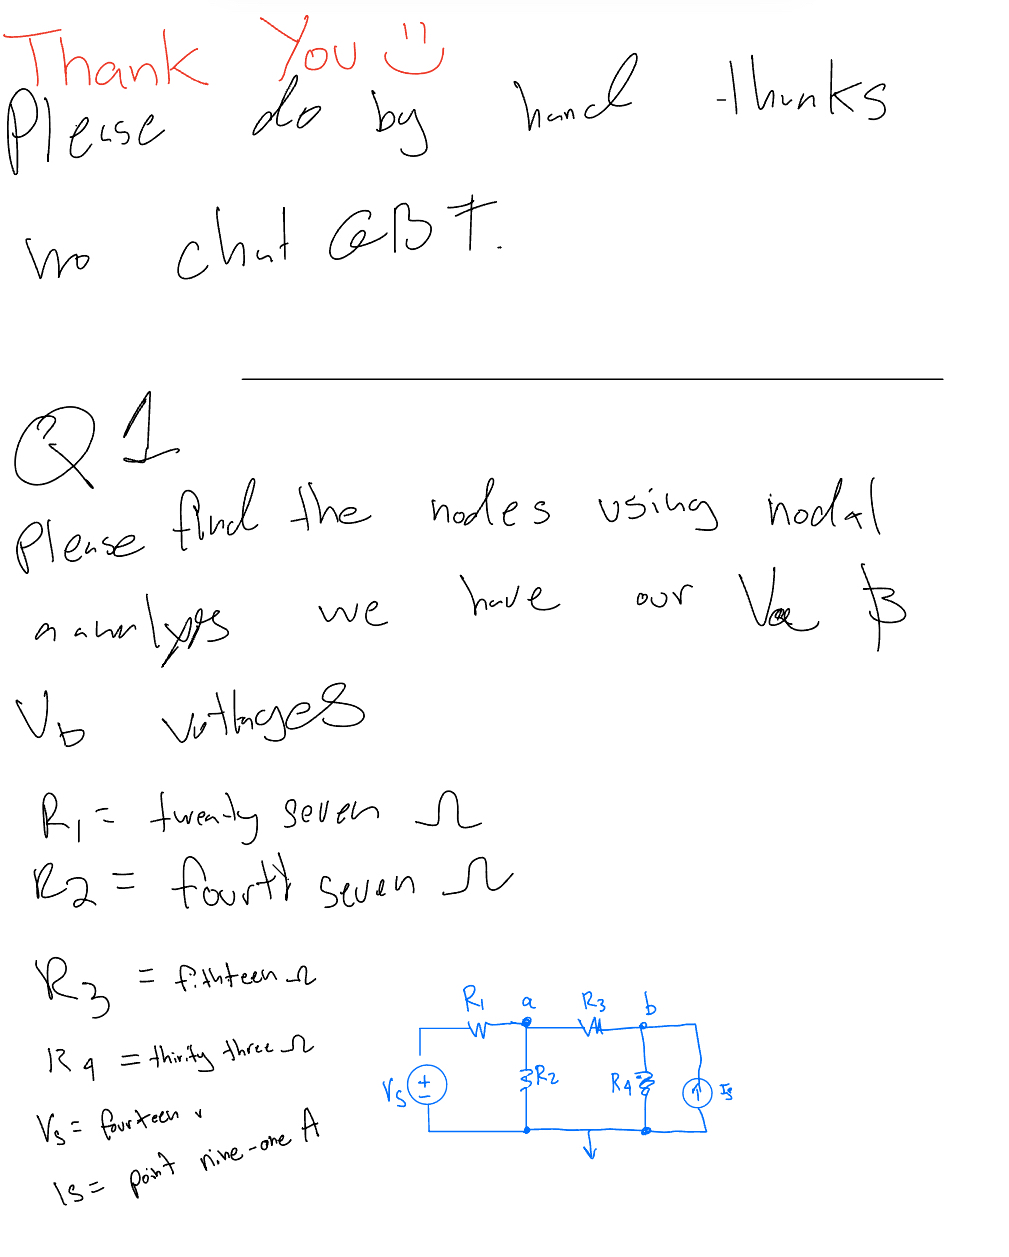 Thank You
Please do by hand thanks
no chat GBT.
Q1
Please find the nodes using nodal
we have our Va &
Vb voltages
R1 = twenty seven Ω
R2 = fourty seven Ω
R3 = fithteen Ω
R4 = thirty three Ω
Vs = fourteen v
Is = point nine-one A
R1 a R3 b
Vs + - R2 R4 Is